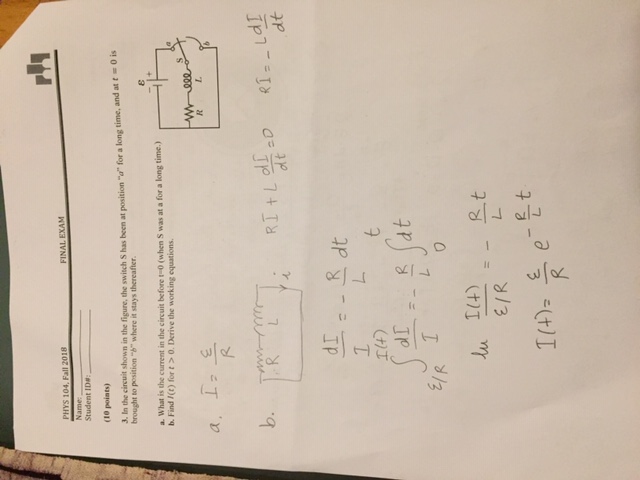 PHYS 104, Fall 2018 FINAL EXAM
Name:
Student ID#:
(10 points)
3. In the circuit shown in the figure, the switch S has been at position "a" for a long time, and at t = 0 is
brought to position "b" where it stays thereafter.
a. What is the current in the circuit before t=0 (when S was at a for a long time.)
b. Find I(t) for t > 0. Derive the working equations.
ε
- +
a
S
R L
b
a. I = ε/R
b. R L i RI + L dI/dt = 0 RI = - L dI/dt
dI/I = - R/L dt
I(t) t
∫ dI/I = - R/L ∫ dt
ε/R 0
ln I(t)/(ε/R) = - R/L t
I(t) = ε/R e^(-R/L t)